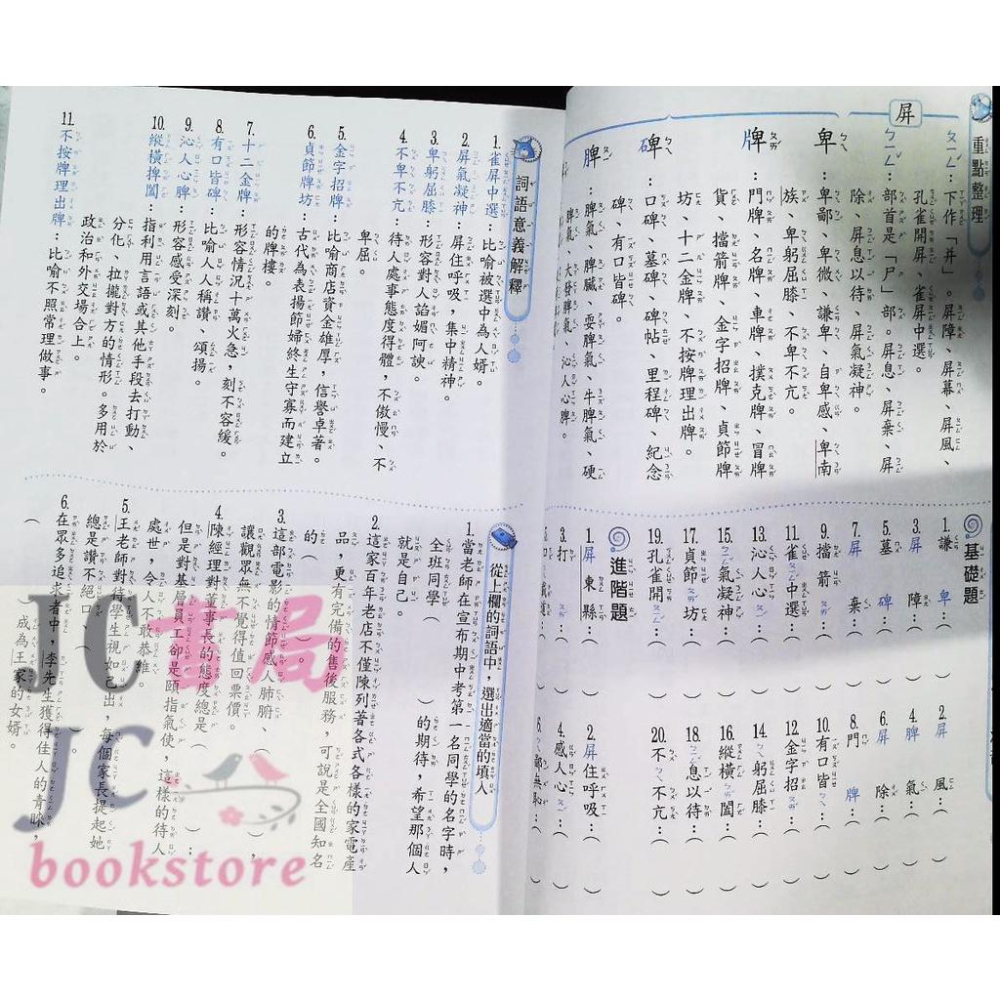 重點整理
屏
ㄆㄧㄥˊ：下作「并」。屏障、屏幕、屏風、
孔雀開屏、雀屏中選。
ㄅㄧㄥˇ：部首是「尸」部。屏息、屏棄、屏
除、屏息以待、屏氣凝神。
卑
ㄅㄟ
：卑鄙、卑微、謙卑、自卑感、卑南
族、卑躬屈膝、不卑不亢。
牌
ㄆㄞˊ
：門牌、名牌、車牌、撲克牌、冒牌
貨、擋箭牌、金字招牌、貞節牌
坊、十二金牌、不按牌理出牌。
碑
ㄅㄟ
：口碑、墓碑、碑帖、里程碑、紀念
碑、有口皆碑。
脾
ㄆㄧˊ
：脾氣、脾臟、耍脾氣、牛脾氣、硬
脾氣、大發脾氣、沁人心脾。
基礎題
1. 謙卑：（　）
2. 屏風：（　）
3. 屏障：（　）
4. 脾氣：（　）
5. 墓碑：（　）
6. 屏除：（　）
7. 屏棄：（　）
8. 門牌：（　）
9. 擋箭ㄆㄞˊ：（　）
10. 有口皆ㄅㄟ：（　）
11. 雀ㄆㄧㄥˊ中選：（　）
12. 金字招ㄆㄞˊ：（　）
13. 沁人心ㄆㄧˊ：（　）
14. ㄅㄟ躬屈膝：（　）
15. ㄅㄧㄥˇ氣凝神：（　）
16. 縱橫ㄅㄞˇ闔：（　）
17. 貞節ㄆㄞˊ坊：（　）
18. ㄅㄧㄥˇ息以待：（　）
19. 孔雀開ㄆㄧㄥˊ：（　）
20. 不ㄅㄟ不亢：（　）
進階題
1. 屏東縣：（　）
2. 屏住呼吸：（　）
3. 打
4. 感人心ㄆㄧˊ：（　）
6. ㄅㄟ鄙無恥：（
詞語意義解釋
1. 雀屏中選：比喻被選中為人婿。
2. 屏氣凝神：屏住呼吸，集中精神。
3. 卑躬屈膝：形容對人諂媚阿諛。
4. 不卑不亢：待人處事態度得體，不傲慢、不
卑屈。
5. 金字招牌：比喻商店資金雄厚，信譽卓著。
6. 貞節牌坊：古代為表揚節婦終生守寡而建立
的牌樓。
7. 十二金牌：形容情況十萬火急，刻不容緩。
8. 有口皆碑：比喻人人稱讚、頌揚。
9. 沁人心脾：形容感受深刻。
10. 縱橫捭闔：指利用言語或其他手段去打動、
分化、拉攏對方的情形。多用於
政治和外交場合上。
11. 不按牌理出牌：比喻不照常理做事。
從上欄的詞語中，選出適當的填入
1. 當老師在宣布期中考第一名同學的名字時，
全班同學（　）的期待，希望那個人
就是自己。
2. 這家百年老店不僅陳列著各式各樣的家電產
品，更有完備的售後服務，可說是全國知名
的（　）。
3. 這部電影的情節感人肺腑、（　），
讓觀眾無不覺得值回票價。
4. 陳經理對董事長的態度總是（　），
但是對基層員工卻是頤指氣使，這樣的待人
處世，令人不敢恭維。
5. 王老師對待學生視如己出，每個家長提起她
總是讚不絕口、（　）。
6. 在眾多追求者中，李先生獲得佳人的青睞，
（　）成為王家的女婿。
JC書局
JC
bookstore